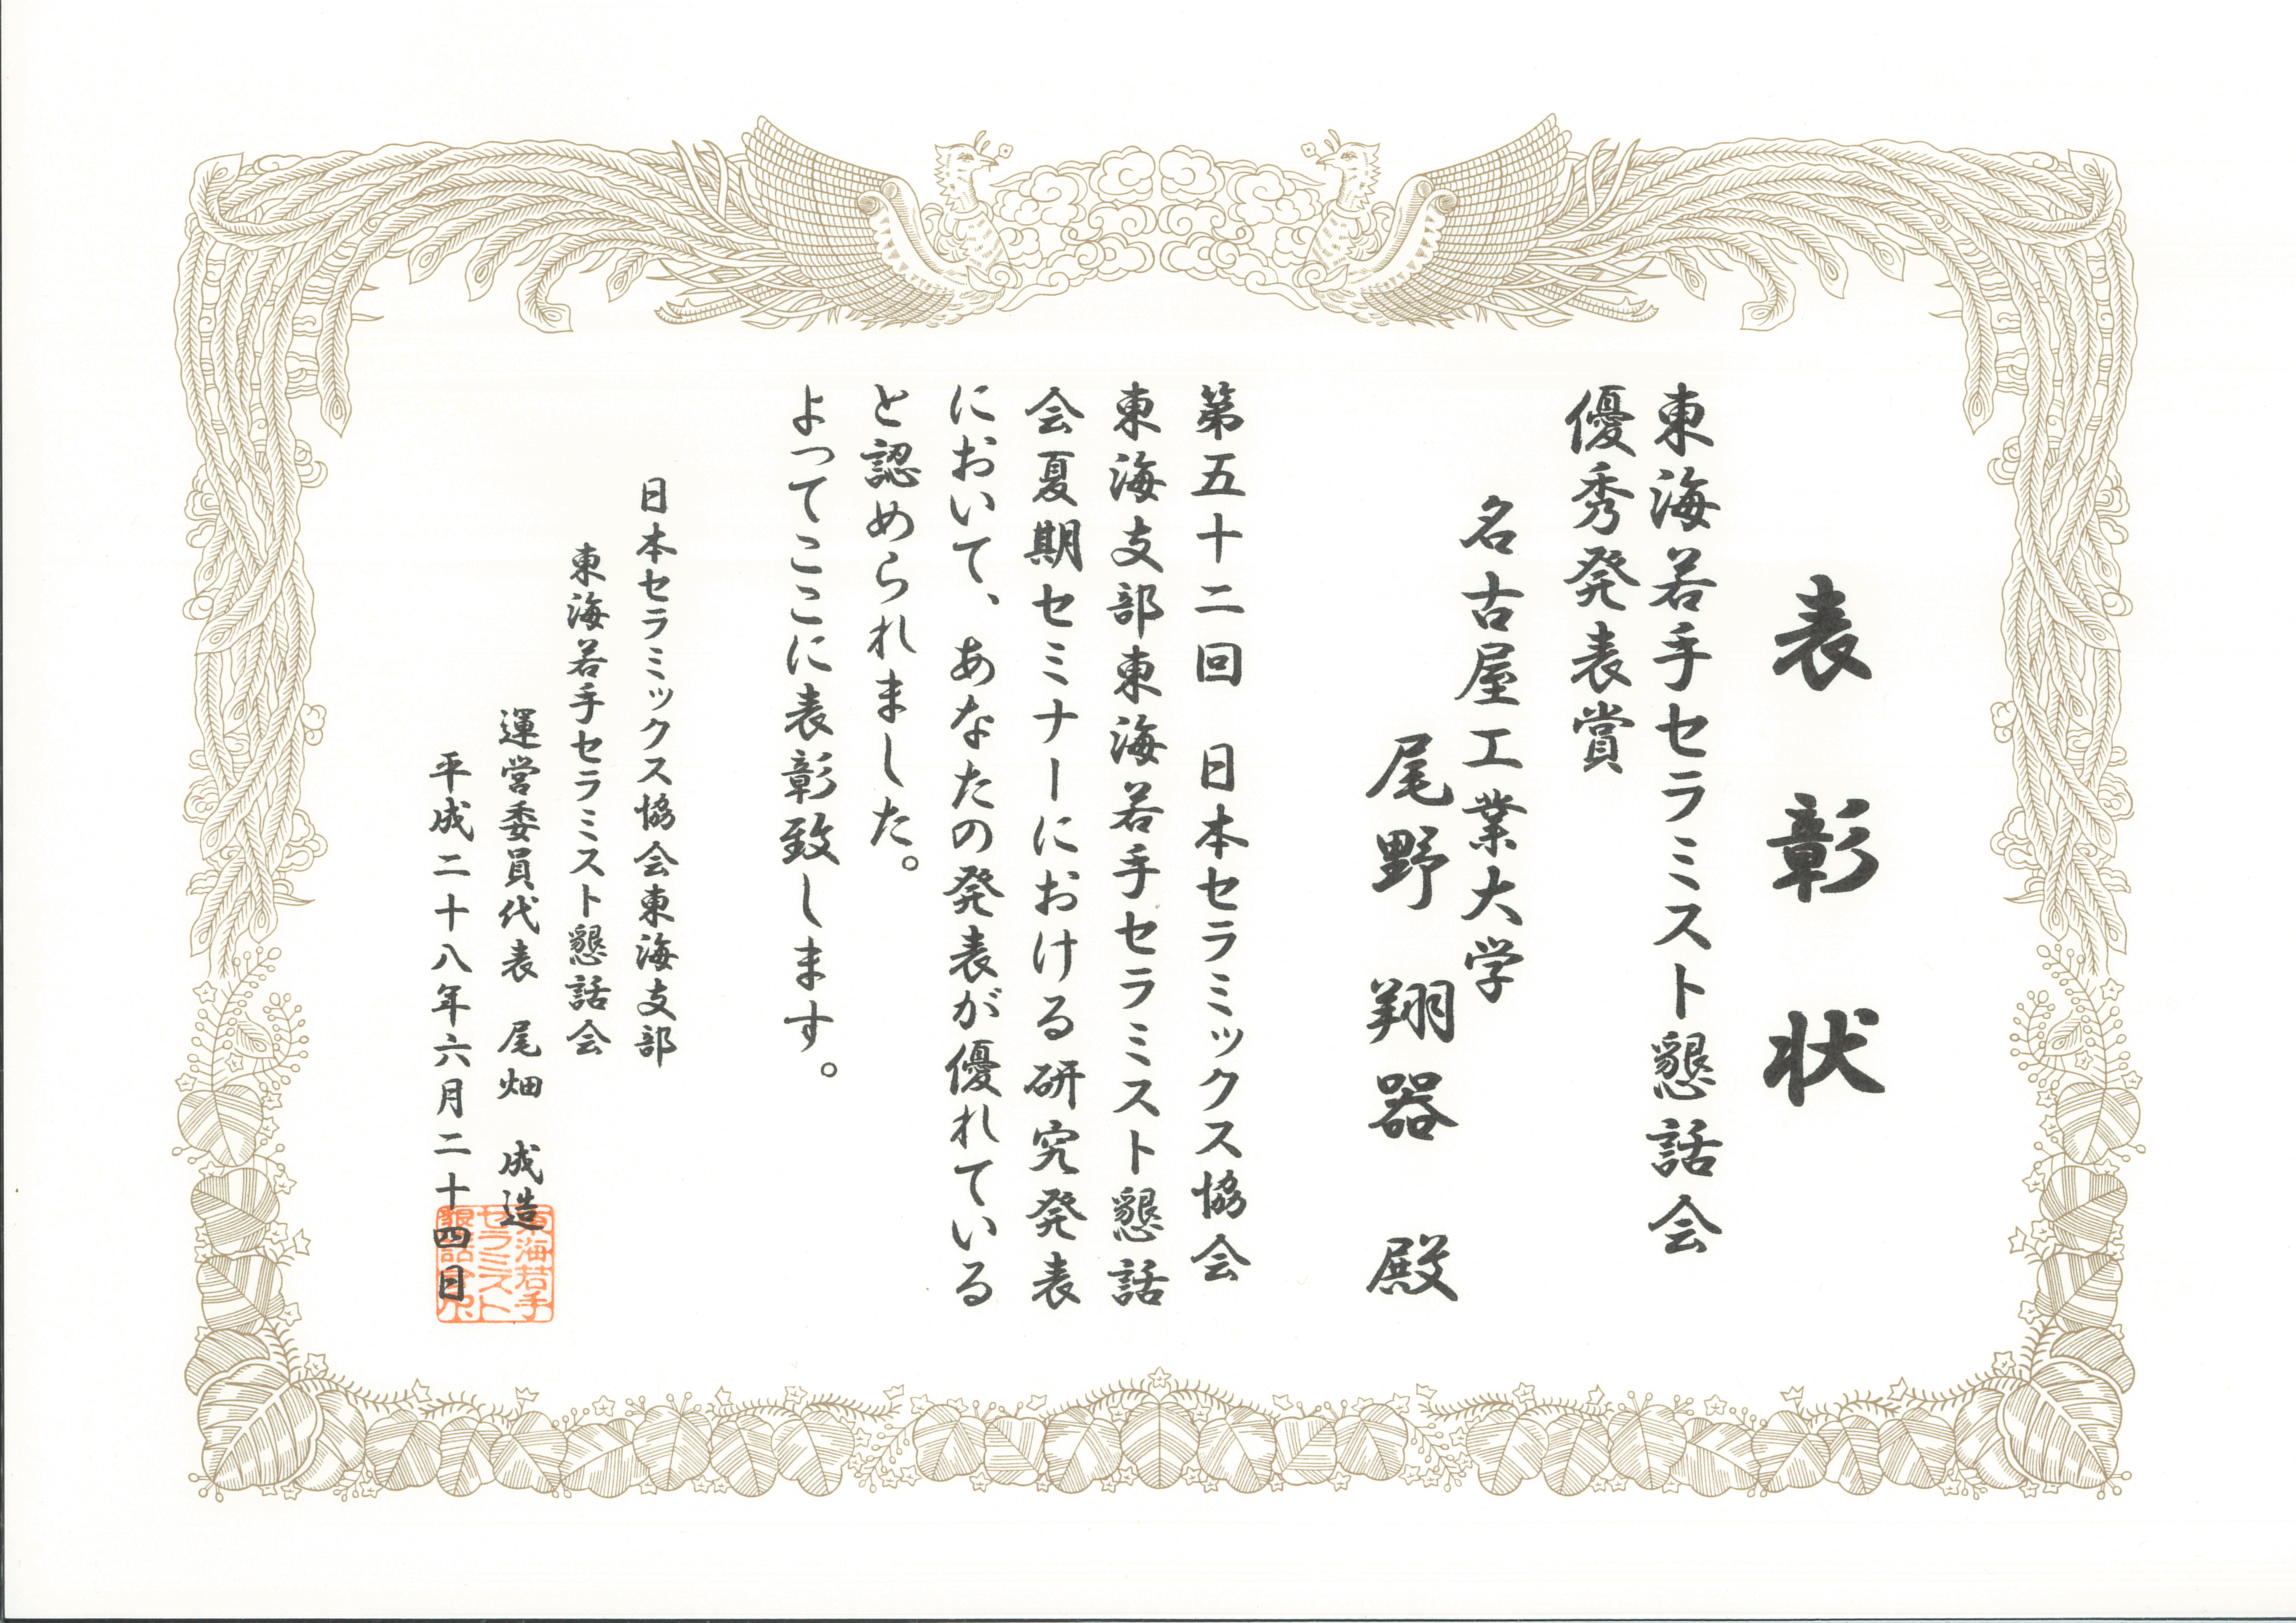 表彰状
東海若手セラミスト懇話会
優秀発表賞
名古屋工業大学
尾野翔器 殿
第五十二回 日本セラミックス協会
東海支部東海若手セラミスト懇話
会夏期セミナーにおける研究発表
において、あなたの発表が優れている
と認められました。
よってここに表彰致します。
日本セラミックス協会東海支部
東海若手セラミスト懇話会
運営委員代表 尾畑 成造
平成二十八年六月二十四日
東海若手
セラミスト
懇話会